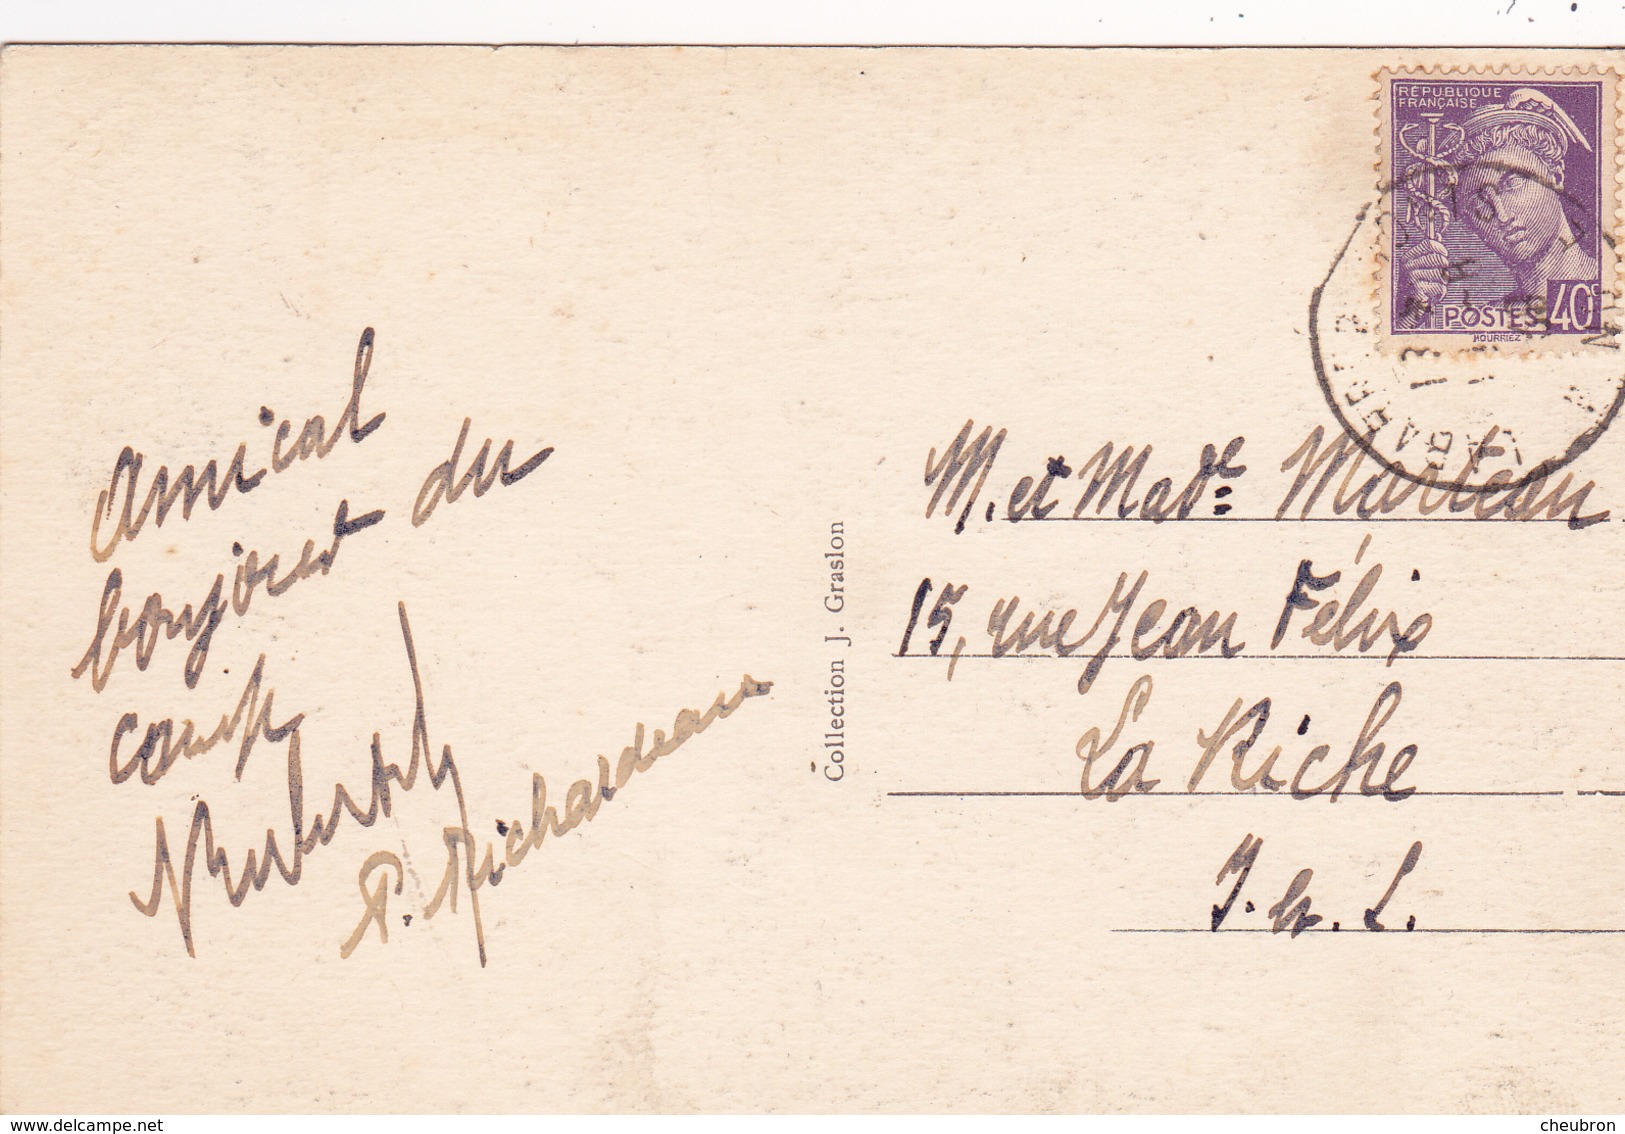 Amical
bonjour du
P. Richardeau
Collection J. Graslon
RÉPUBLIQUE
FRANÇAISE
POSTES
40c
HOURRIEZ
M. et Made Marteau
15, rue Jean Félix
La Riche
I. et. L.
www.delcampe.net
cheubron